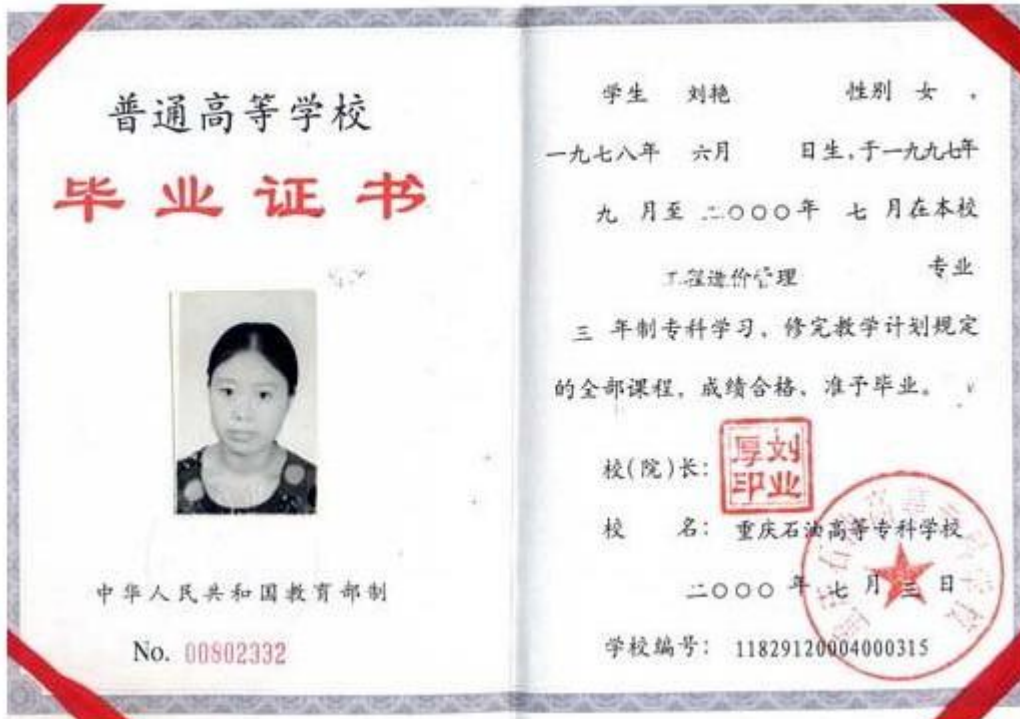 普通高等学校
毕业证书
中华人民共和国教育部制
No. 00802332
学生 刘艳 性别 女 ，
一九七八年 六月 日生，于一九九七年
九 月至 二〇〇〇年 七 月在本校
工程造价管理 专业
三 年制专科学习，修完教学计划规定
的全部课程，成绩合格，准予毕业。
校(院)长：
刘业厚印
校 名： 重庆石油高等专科学校
二〇〇〇 年 七 月 三 日
学校编号： 11829120004000315